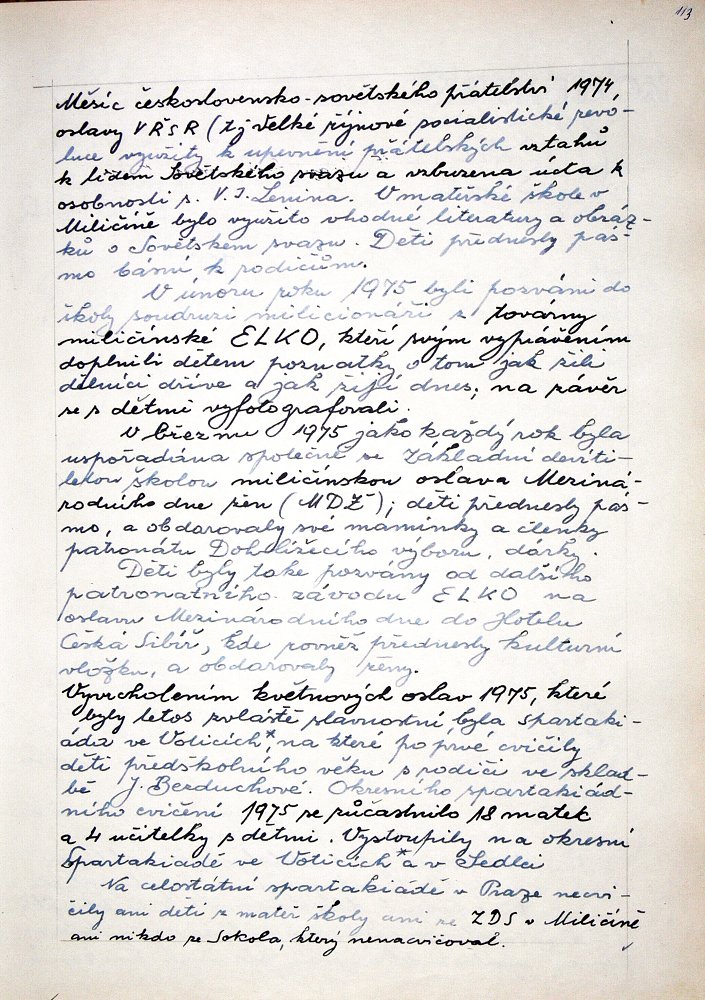 113
Měsíc československo-sovětského přátelství 1974,
oslavy VŘSR (tj Velké říjnové socialistické revo-
luce využity k upevnění přátelských vztahů
k lidem Sovětského svazu a vzbuzena úcta k
osobnosti s. V. I. Lenina. V mateřské škole v
Miličíně bylo využito vhodné literatury a obráz-
ků o Sovětském svazu. Děti přednesly pás-
mo básní k rodičům.
V únoru roku 1975 byli pozváni do
školy soudruzi milicionáři z továrny
miličínské ELKO, kteří svým vyprávěním
doplnili dětem poznatky o tom jak žili
dělníci dříve a jak žijí dnes; na závěr
se s dětmi vyfotografovali.
V březnu 1975 jako každý rok byla
uspořádána společně se Základní devíti-
letou školou miličínskou oslava Meziná-
rodního dne žen (MDŽ); děti přednesly pás-
mo, a obdarovaly své maminky a členky
patronátu Dohlížecího výboru, dárky.
Děti byly také pozvány od dalšího
patronátního závodu ELKO na
oslavu Mezinárodního dne do Hotelu
Česká Sibiř, kde rovněž přednesly kulturní
vložku, a obdarovaly ženy.
Vyvrcholením květnových oslav 1975, které
byly letos zvláště slavnostní byla spartaki-
áda ve Voticích*, na které poprvé cvičily
děti předškolního věku s rodiči ve sklad-
bě J. Berduchové. Okresního spartakiád-
ního cvičení 1975 se zúčastnilo 18 matek
a 4 učitelky s dětmi. Vystoupily na okresní
Spartakiádě ve Voticích* a v Sedlci
Na celostátní spartakiádě v Praze necvi-
čily ani děti z mateř školy ani ze ZDŠ v Miličíně
ani nikdo ze Sokola, který nenacvičoval.